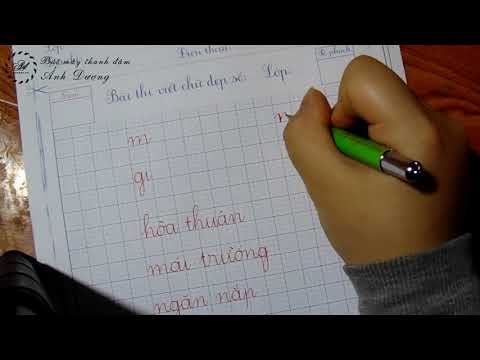 Bút máy thanh đậm
Ánh Dương
Lớp:
Điện thoại:
Bài thi viết chữ đẹp số: Lớp:
m
n
gi
hòa thuận
mái trường
ngăn nắp